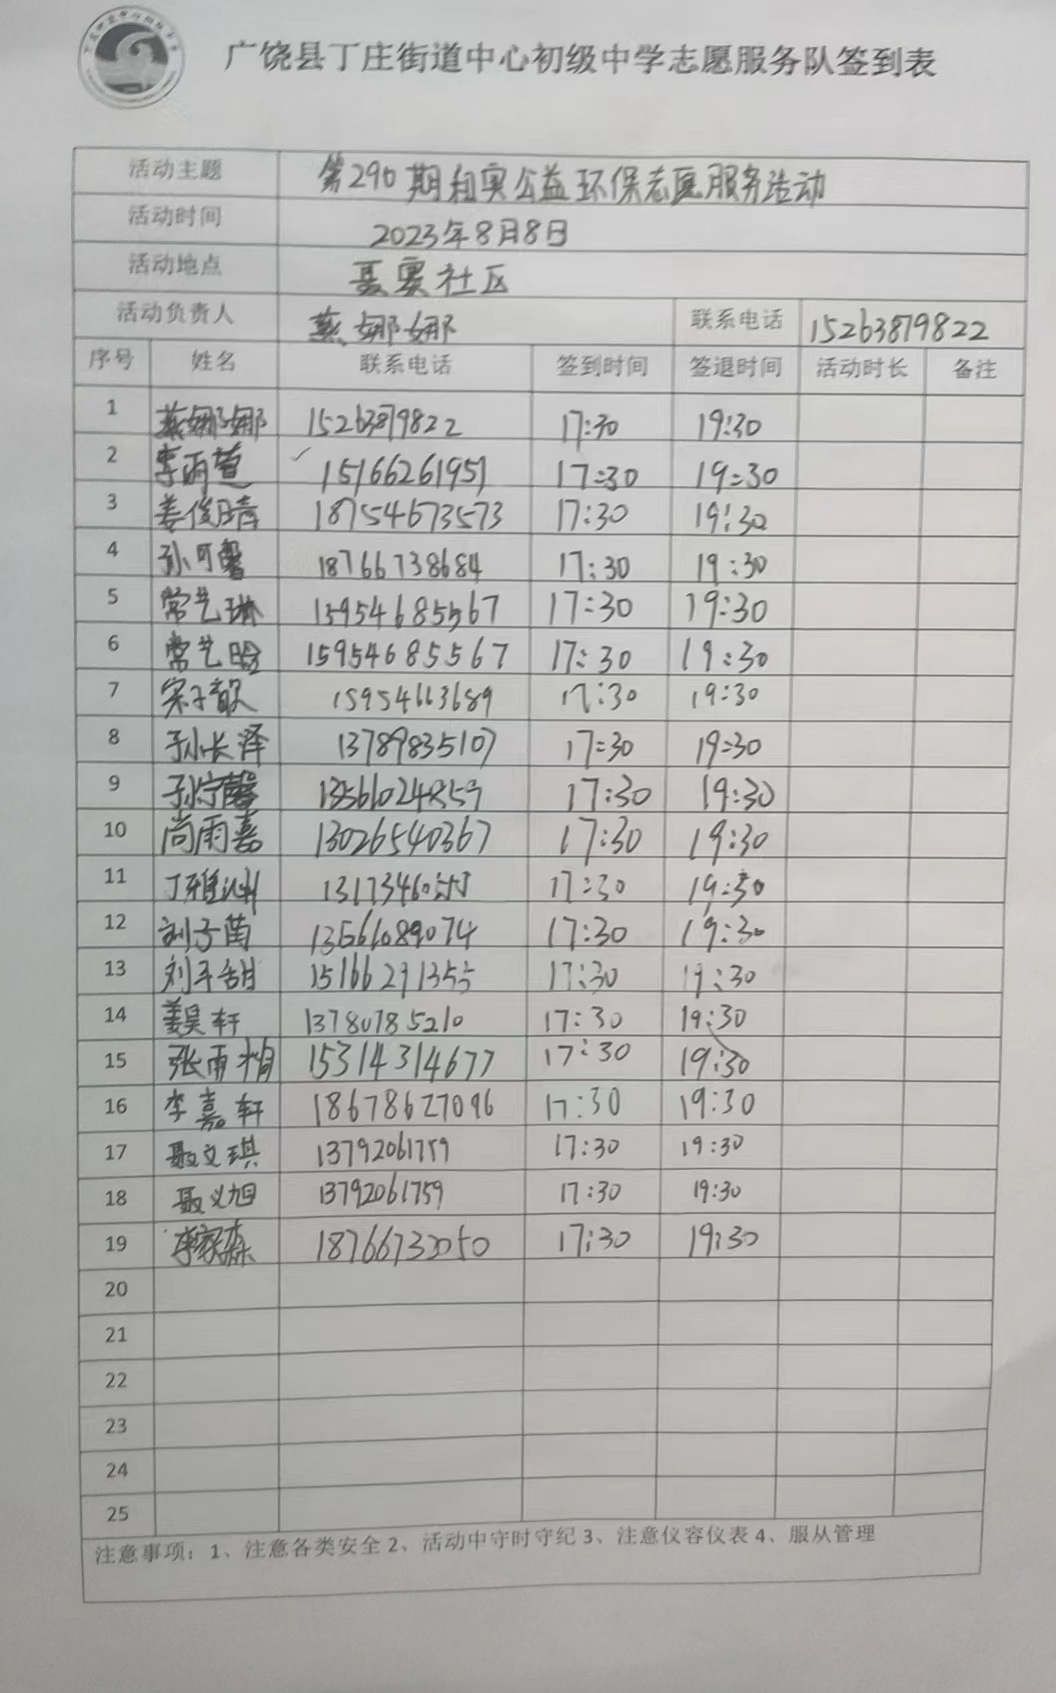 广饶县丁庄街道中心初级中学志愿服务队签到表
活动主题 第290期和实公益环保志愿服务活动
活动时间 2023年8月8日
活动地点 聂寨社区
活动负责人 燕娜娜 联系电话 15263879822
序号 姓名 联系电话 签到时间 签退时间 活动时长 备注
1 燕娜娜 15263879822 17:30 19:30
2 李雨萱 15166261951 17:30 19:30
3 姜俊晴 18754673573 17:30 19:30
4 孙可馨 18766738684 17:30 19:30
5 常艺琳 15954685567 17:30 19:30
6 常艺晗 15954685567 17:30 19:30
7 宋子歆 15954663689 17:30 19:30
8 孙长泽 13789835107 17:30 19:30
9 孙宁馨 13561024859 17:30 19:30
10 尚雨嘉 13026540367 17:30 19:30
11 丁雅 17:30 19:30
12 刘子茵 13561089074 17:30 19:30
13 刘子甜 15166291355 17:30 19:30
14 姜昊轩 13780785210 17:30 19:30
15 张雨 15314314677 17:30 19:30
16 李嘉轩 18678627096 17:30 19:30
17 聂义琪 13792061759 17:30 19:30
18 聂义旭 13792061759 17:30 19:30
19 李家森 18766732050 17:30 19:30
20
21
22
23
24
25
注意事项：1、注意各类安全 2、活动中守时守纪 3、注意仪容仪表 4、服从管理